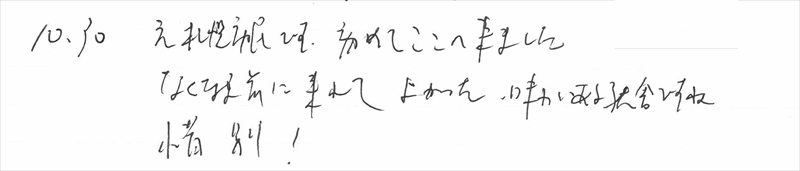 10.30 元札幌市民です. 初めてここへ来ました
なくなる前に来れてよかった. 味がある駅舎ですね
惜別!